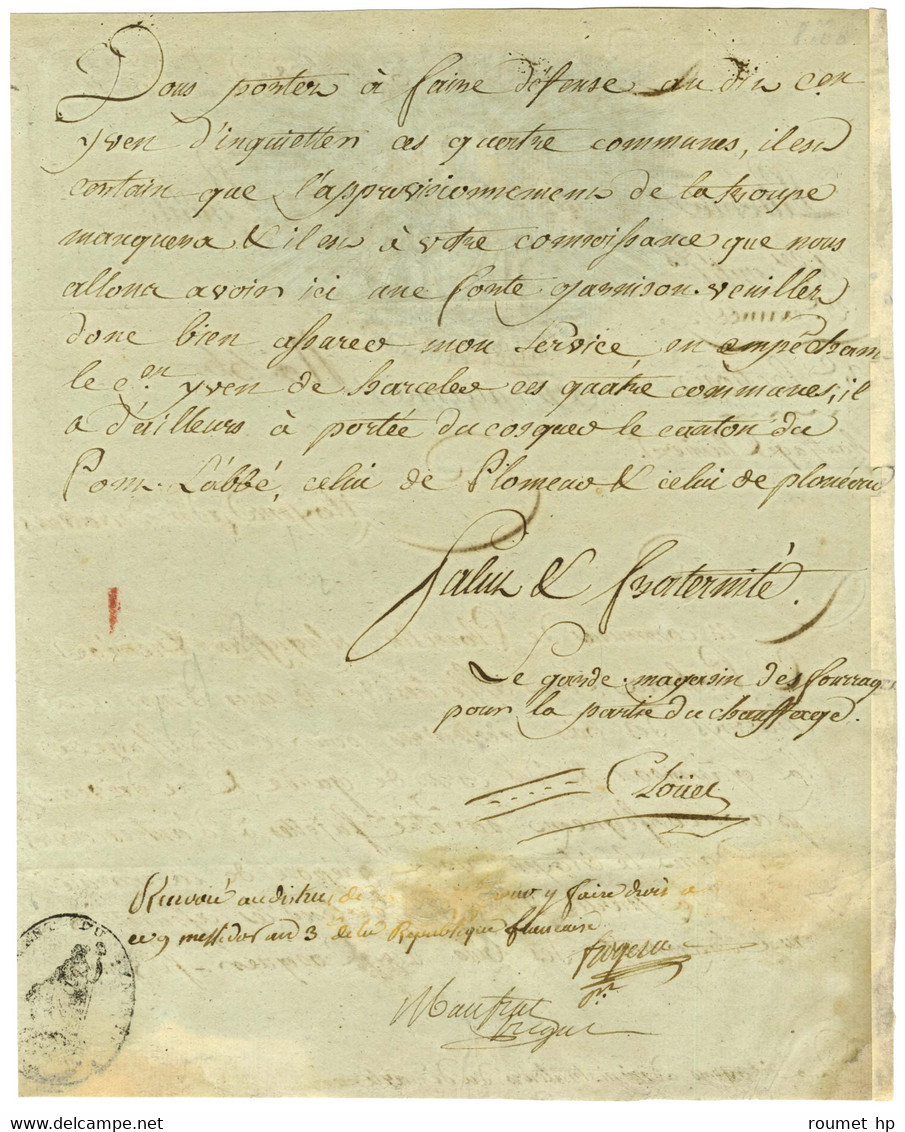 Vous porter à faire défense au dit cen
yven d'inquietter ces quatre communes, il est
certain que l'approvisionnement de la troupe
manquera & il est à votre connoissance que nous
allons avoir ici une forte garnison. veuillez
donc bien assurer mon service, en empêchant
le cen yven de harceler ces quatre communes, il
a d'ailleurs à portée du cosquer le canton du
Pont L'abbé, celui de Plomeur & celui de
Salut & fraternité.
Le garde magasin des fourrag
pour la partie du chauffage.
Clöuet
Renvoié au district de pour y faire droit
ce 9 messidor an 3 de la République francaise